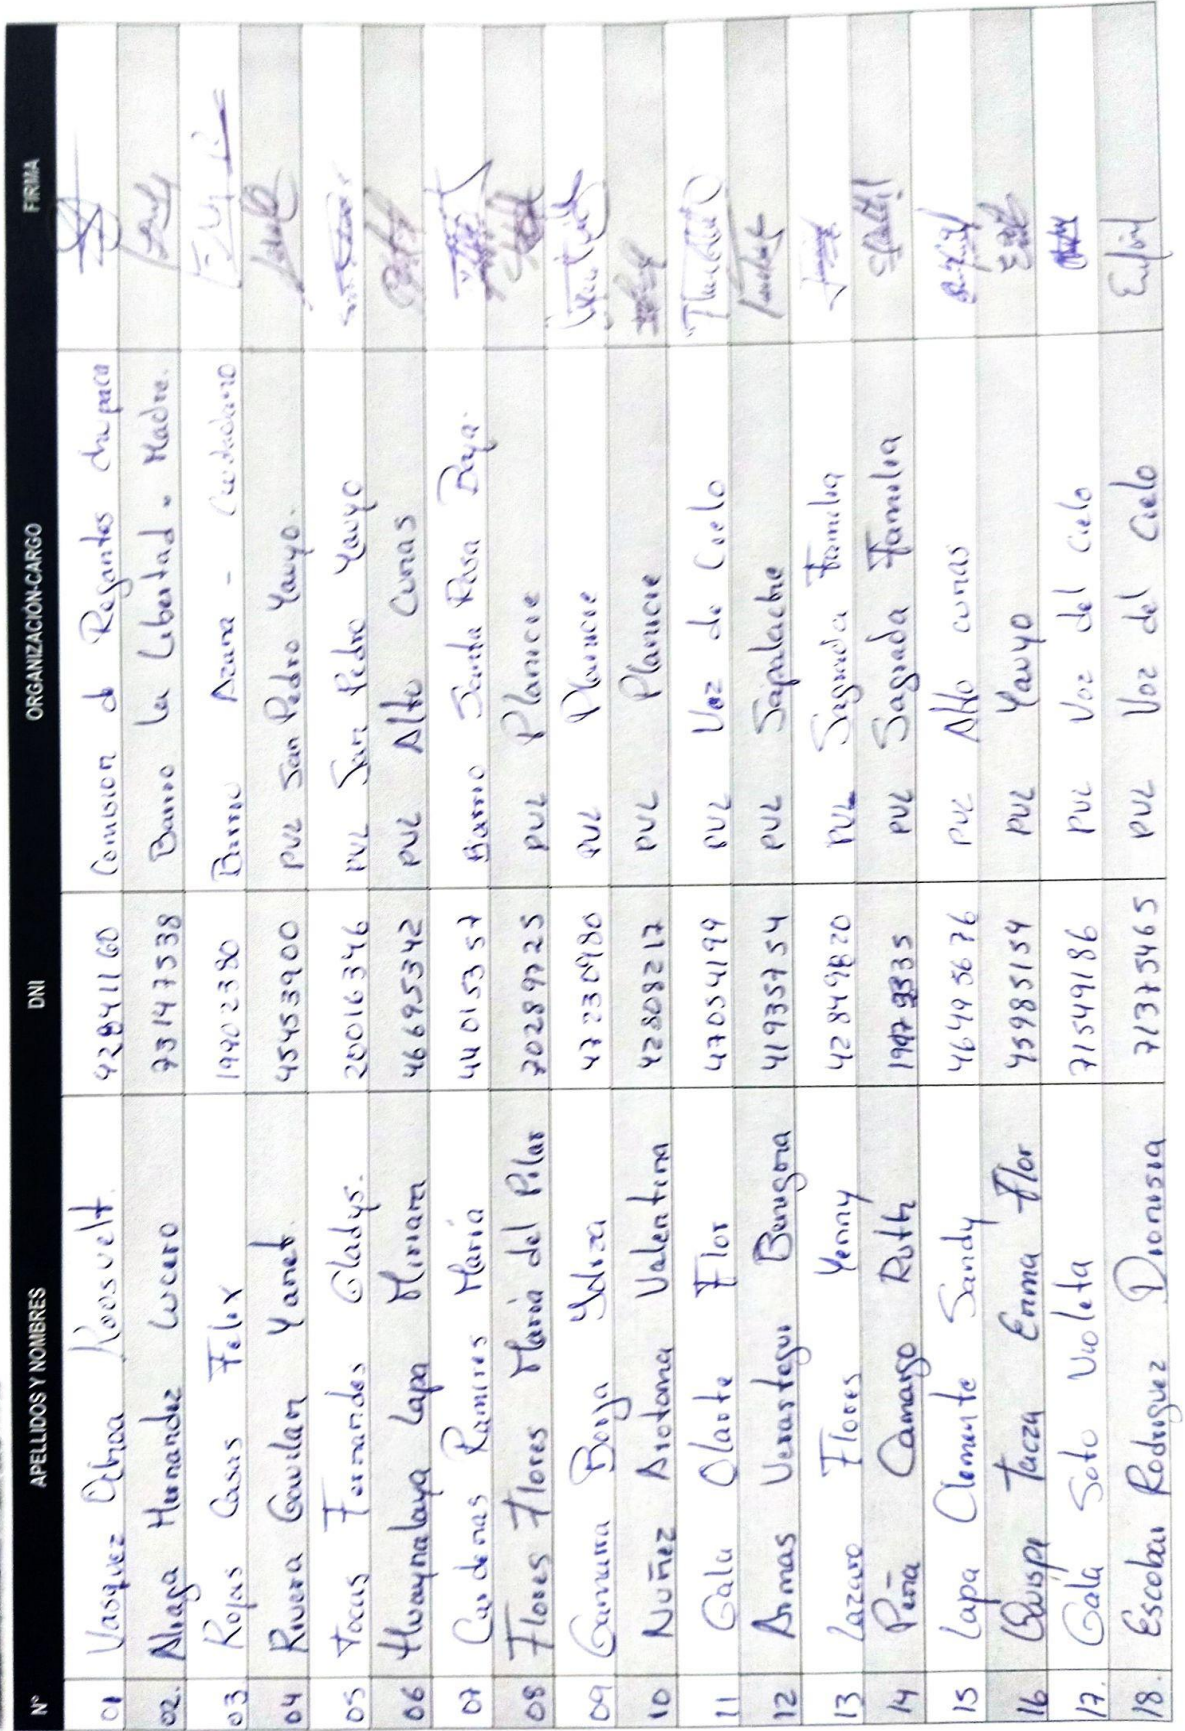 N° APELLIDOS Y NOMBRES DNI ORGANIZACIÓN-CARGO FIRMA
01 Vasquez Ochoa Roosvelt. 42841160 Comision d Regantes chupaca
02. Aliaga Hernandez Lucero 73147538 Barrio la Libertad. Madre.
03 Rojas Casas Felix 19902380 Barrio Azana - Ciudadano
04 Rivera Gavilan Yanet. 45453900 PVL San Pedro Yauyo.
05 Tocas Fernandes Gladys. 20016346 PVL San Pedro Yauyo
06 Huaynalaya Lapa Miriam 46695342 PVL Alto Cunas
07 Cardenas Ramires Maria 44015357 Barrio Santa Rosa Baja.
08 Flores Flores Maria del Pilar 70289725 PVL Planicie
09 Gamarra Borja 47230980 PVL Planicie
10 Nuñez Arotoma Valentina 42808217 PVL Planicie
11 Gala Olarte Flor 47054199 PVL Voz de Cielo
12 Armas Verastegui Benigna 41935754 PVL Sapalache
13 Lazaro Flores Yenny 42849820 PVL Sagrada Familia
14 Peña Camargo Ruth PVL Sagrada Familia
15 Lapa Clemente Sandy 46495676 PVL Alto cunas
16 Quispe Tacza Emma Flor 45985154 PVL Yauyo
17. Gala Soto Violeta 71549186 PVL Voz del Cielo
18. Escobar Rodriguez Dionisia 71375465 PVL Voz del Cielo